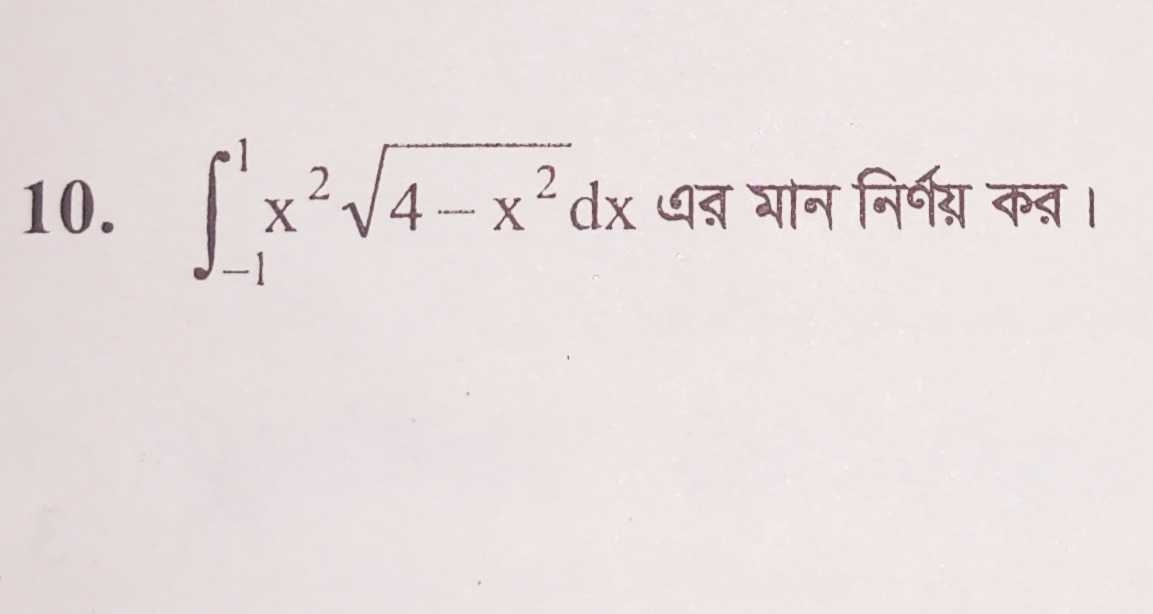 10. ∫₋₁¹ x²√(4 − x²) dx এর মান নির্ণয় কর।